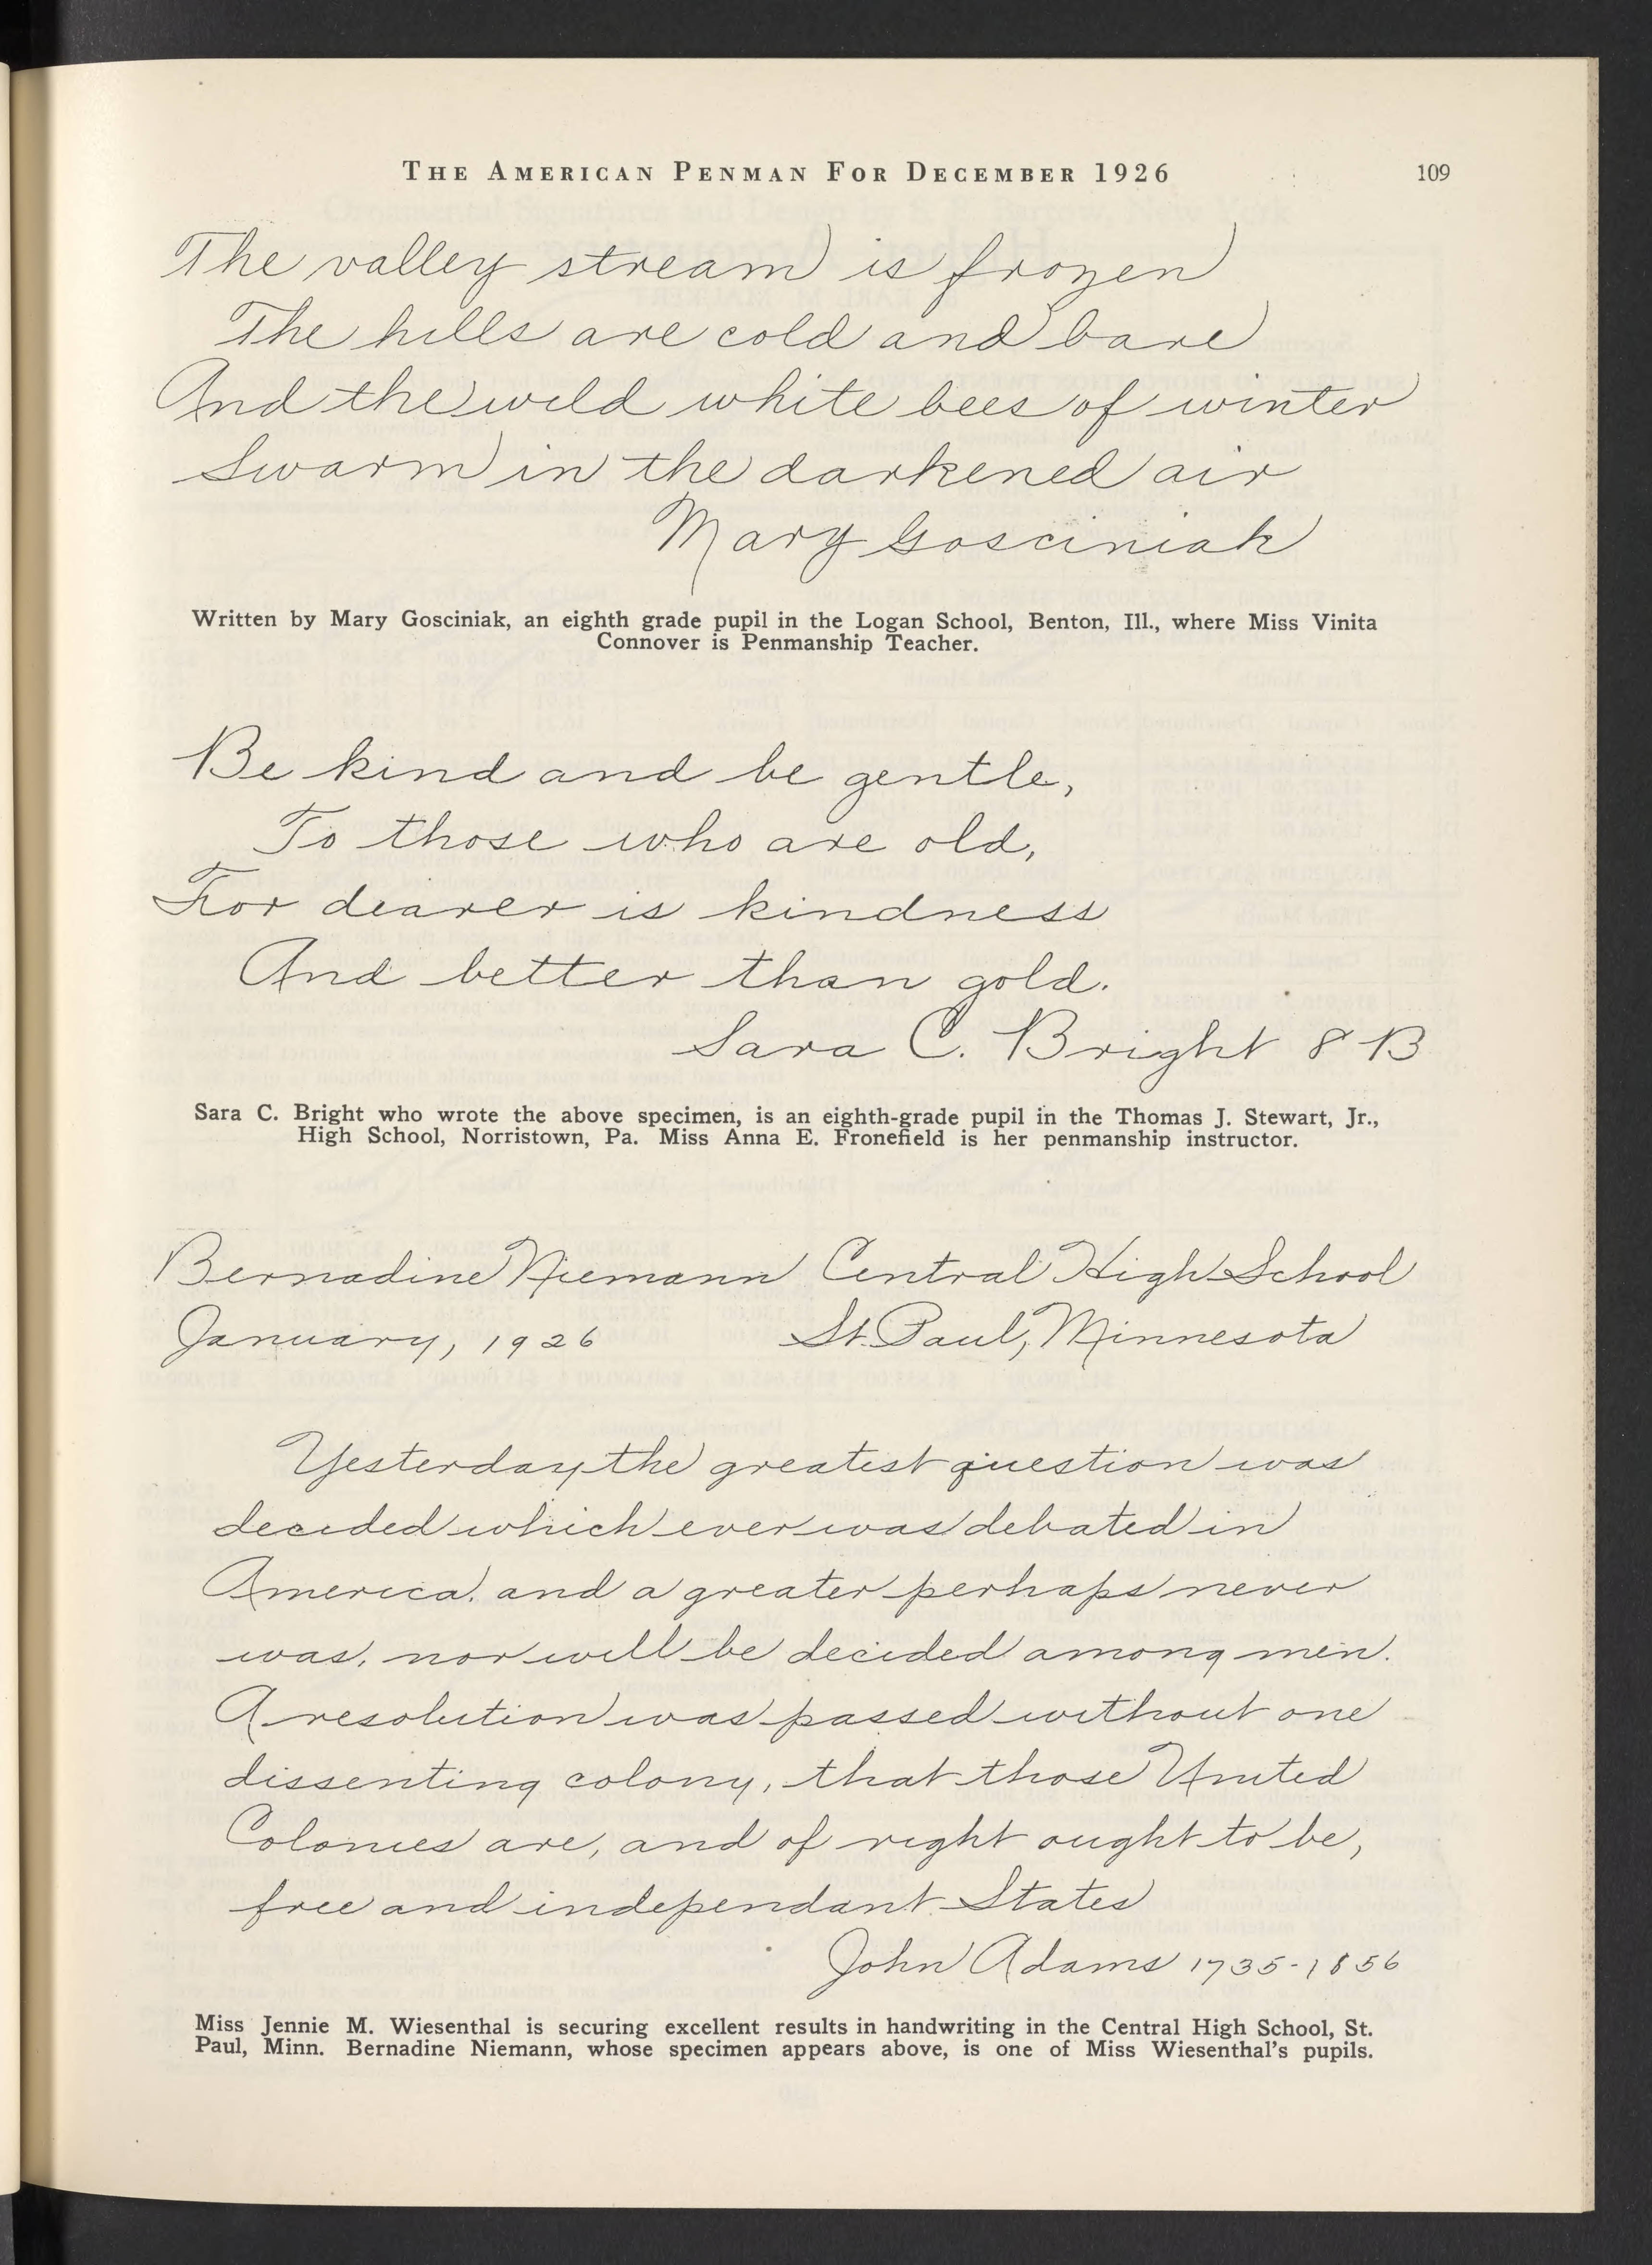 THE AMERICAN PENMAN FOR DECEMBER 1926 109
The valley stream is frozen
The hills are cold and bare
And the wild white bees of winter
Swarm in the darkened air
Mary Gosciniak
Written by Mary Gosciniak, an eighth grade pupil in the Logan School, Benton, Ill., where Miss Vinita
Connover is Penmanship Teacher.
Be kind and be gentle,
To those who are old,
For dearer is kindness
And better than gold.
Sara C. Bright 8 B
Sara C. Bright who wrote the above specimen, is an eighth-grade pupil in the Thomas J. Stewart, Jr.,
High School, Norristown, Pa. Miss Anna E. Fronefield is her penmanship instructor.
Bernadine Niemann Central High School
January, 1926 St. Paul, Minnesota
Yesterday the greatest question was
decided which ever was debated in
America, and a greater perhaps never
was, nor will be decided among men.
A resolution was passed without one
dissenting colony, that those United
Colonies are, and of right ought to be,
free and independant States
John Adams 1735-1856
Miss Jennie M. Wiesenthal is securing excellent results in handwriting in the Central High School, St.
Paul, Minn. Bernadine Niemann, whose specimen appears above, is one of Miss Wiesenthal's pupils.